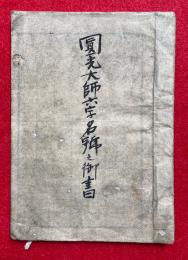 圓光大師六字名號之御書